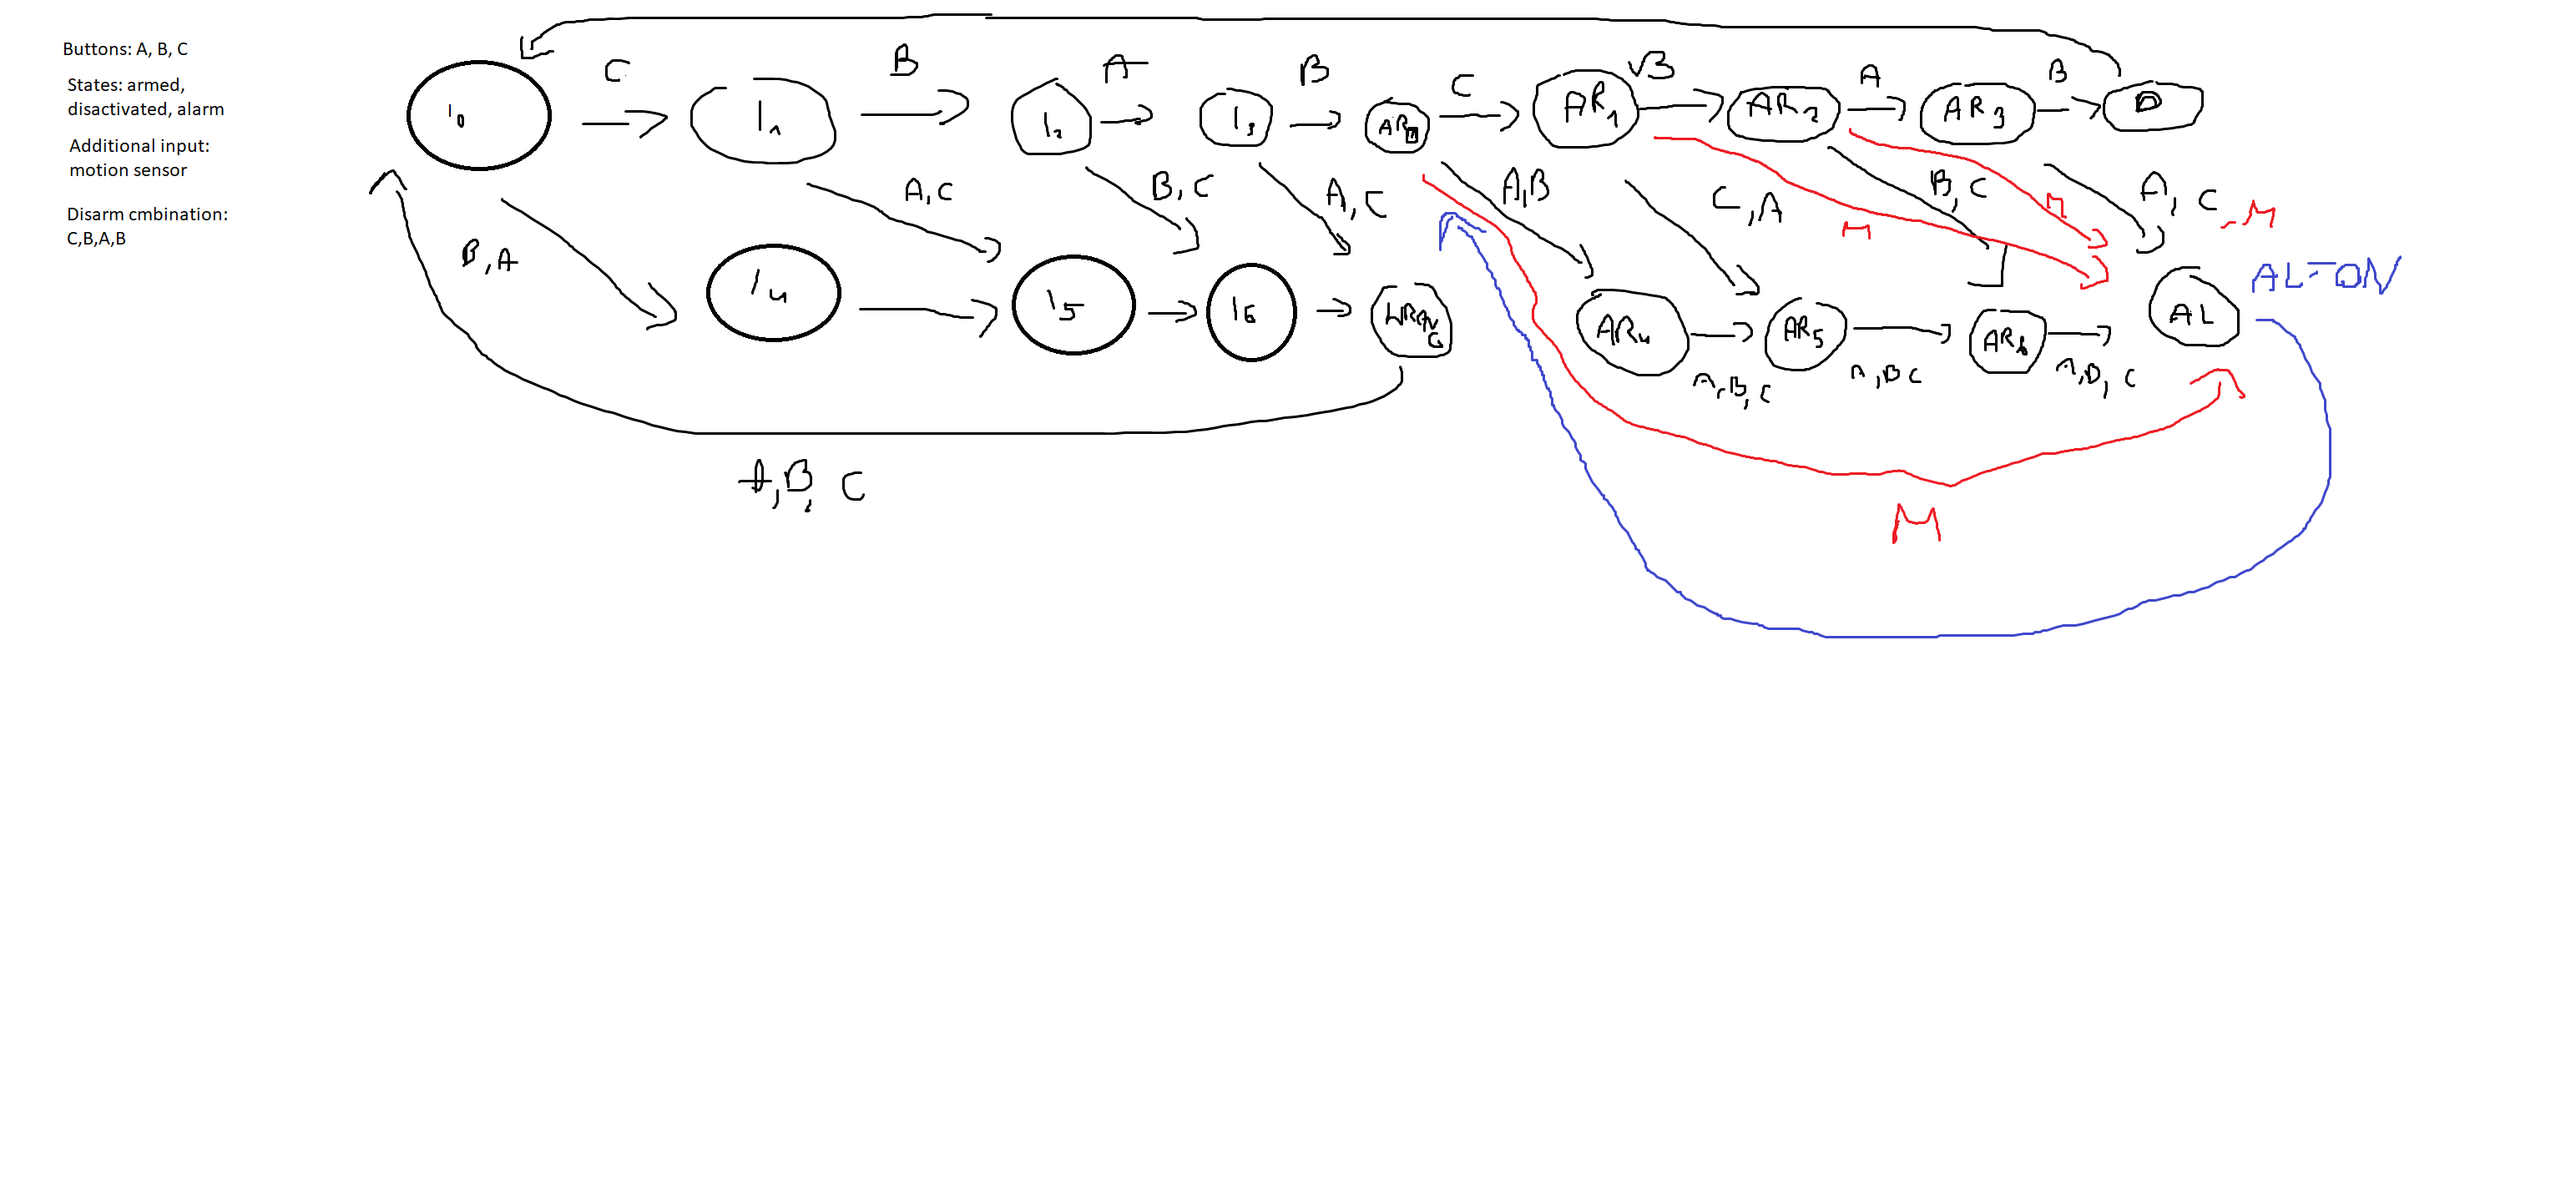 Buttons: A, B, C
States: armed,
disactivated, alarm
Additional input:
motion sensor
Disarm cmbination:
C,B,A,B
C
B
A
B
C
B
A
B
I0
I1
I2
I3
AR0
AR1
AR2
AR3
D
B,A
A,C
B,C
A,C
A,B
C,A
B,C
A, C, M
M
M
I4
I5
I6
WRONG
AR4
AR5
AR6
AL
AL=ON
A,B,C
A,B C
A,B, C
A,B, C
M